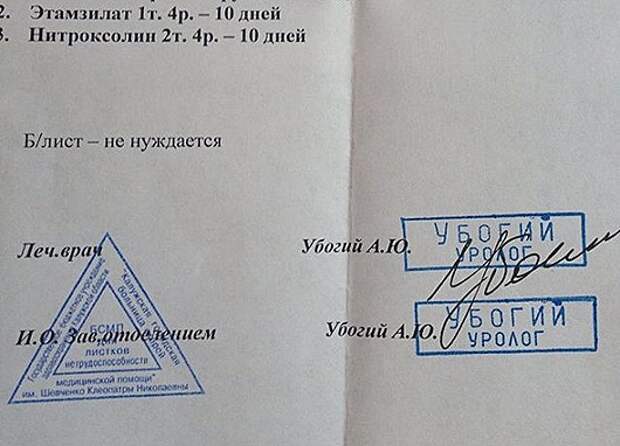 2. Этамзилат 1т. 4р. – 10 дней
3. Нитроксолин 2т. 4р. – 10 дней
Б/лист – не нуждается
Леч.врач Убогий А.Ю.
УБОГИЙ
УРОЛОГ
И.О. Зав.отделением Убогий А.Ю.
УБОГИЙ
УРОЛОГ
Государственное бюджетное учреждение
здравоохранения Калужской области
"Калужская городская
больница скорой
медицинской помощи"
им. Шевченко Клеопатры Николаевны
БСМП
для
листков
нетрудоспособности